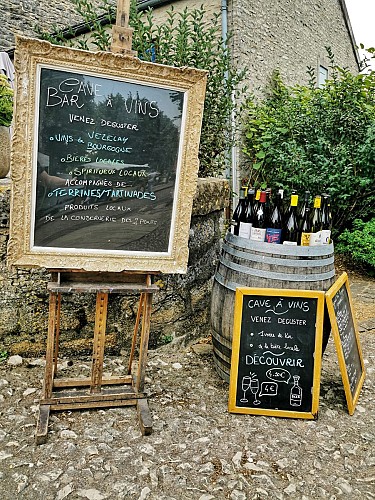 CAVE À VINS
BAR
VENEZ DEGUSTER
VINS DE VEZELAY
BOURGOGNE
BIERES LOCALES
SPIRITUEUX LOCAUX
ACCOMPAGNÉS DE
TERRINES/TARTINADES
PRODUITS LOCAUX
DE LA CONSERVERIE DES
CAVE À VINS
VENEZ DEGUSTER
1 verre de Vin
ou de la bière locale
DÉCOUVRIR
4€